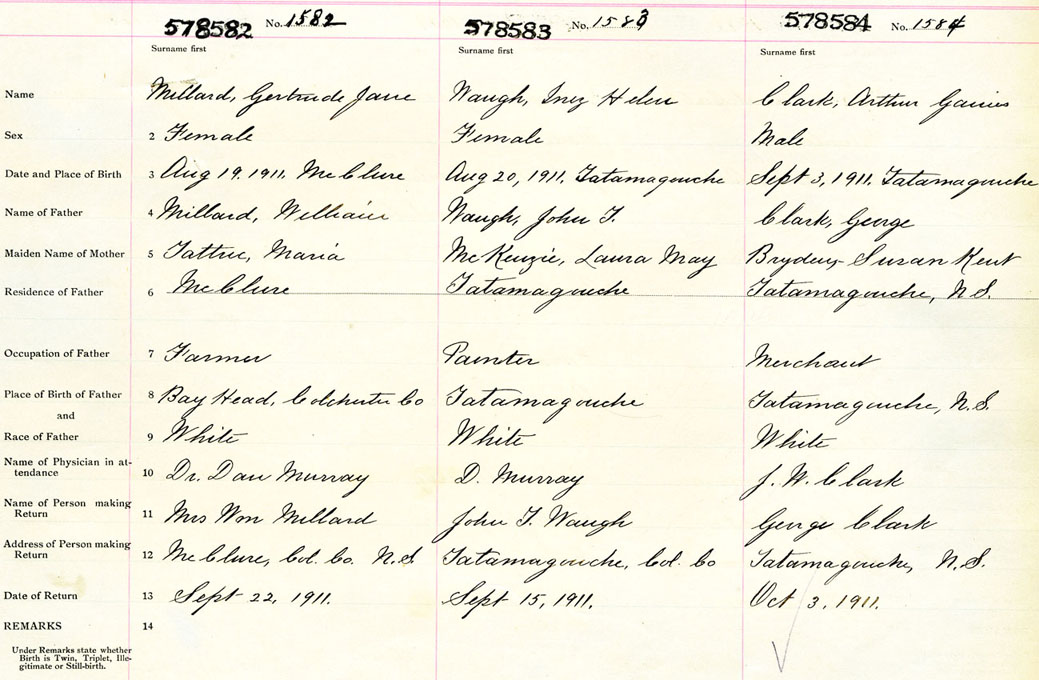 578582 No. 1582 578583 No. 1583 578584 No. 1584
Surname first Surname first Surname first
Name Millard, Gertrude Jane Waugh, Inez Helen Clark, Arthur Gaines
Sex 2 Female Female Male
Date and Place of Birth 3 Aug 19. 1911. McClure Aug 20, 1911. Tatamagouche Sept 3, 1911. Tatamagouche
Name of Father 4 Millard, William Waugh, John T. Clark, George
Maiden Name of Mother 5 Tattrie, Maria McKenzie, Laura May Bryden, Susan Kent
Residence of Father 6 McClure Tatamagouche Tatamagouche, N.S.
Occupation of Father 7 Farmer Painter Merchant
Place of Birth of Father 8 Bay Head, Colchester Co Tatamagouche Tatamagouche, N.S.
and
Race of Father 9 White White White
Name of Physician in at-
tendance 10 Dr. Dan Murray D. Murray J. W. Clark
Name of Person making
Return 11 Mrs Wm Millard John T. Waugh George Clark
Address of Person making
Return 12 McClure, Col. Co. N.S Tatamagouche, Col. Co Tatamagouche, N.S.
Date of Return 13 Sept 22, 1911. Sept 15, 1911. Oct 3, 1911.
REMARKS 14
Under Remarks state whether
Birth is Twin, Triplet, Ille-
gitimate or Still-birth.